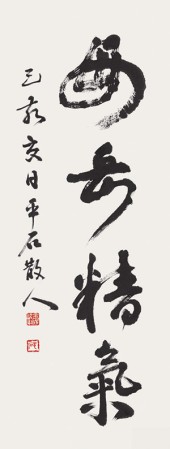 岳精氣
己亥夏日平石散人